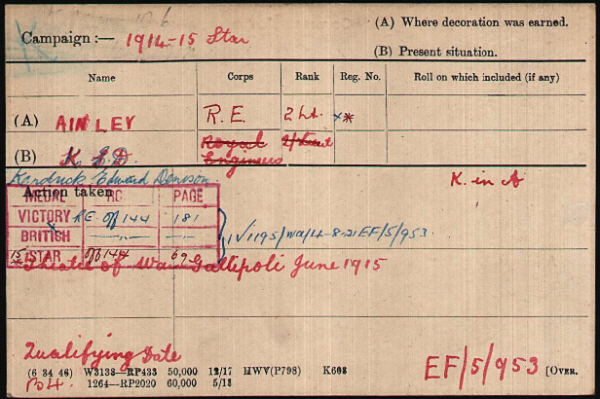 Campaign :— 1914-15 Star
(A) Where decoration was earned.
(B) Present situation.
Name Corps Rank Reg. No. Roll on which included (if any)
(A) AINLEY R.E. 2/Lt. x*
(B) K. E. D. Royal Engineers 2/Lieut
Kendrick Edward Denison.
K. in A
Action taken
MEDAL PAGE
VICTORY R.E. Off 144 181
BRITISH —"— —"—
15 STAR Off 144 69
IV/1195/WA/4-8-21 EF/5/953.
Theatre of War Gallipoli June 1915
Qualifying Date
(6 34 46) W3138—RP433 50,000 12/17 HWV(P798) K608
1264—RP2020 60,000 5/18
EF/5/953 [OVER.